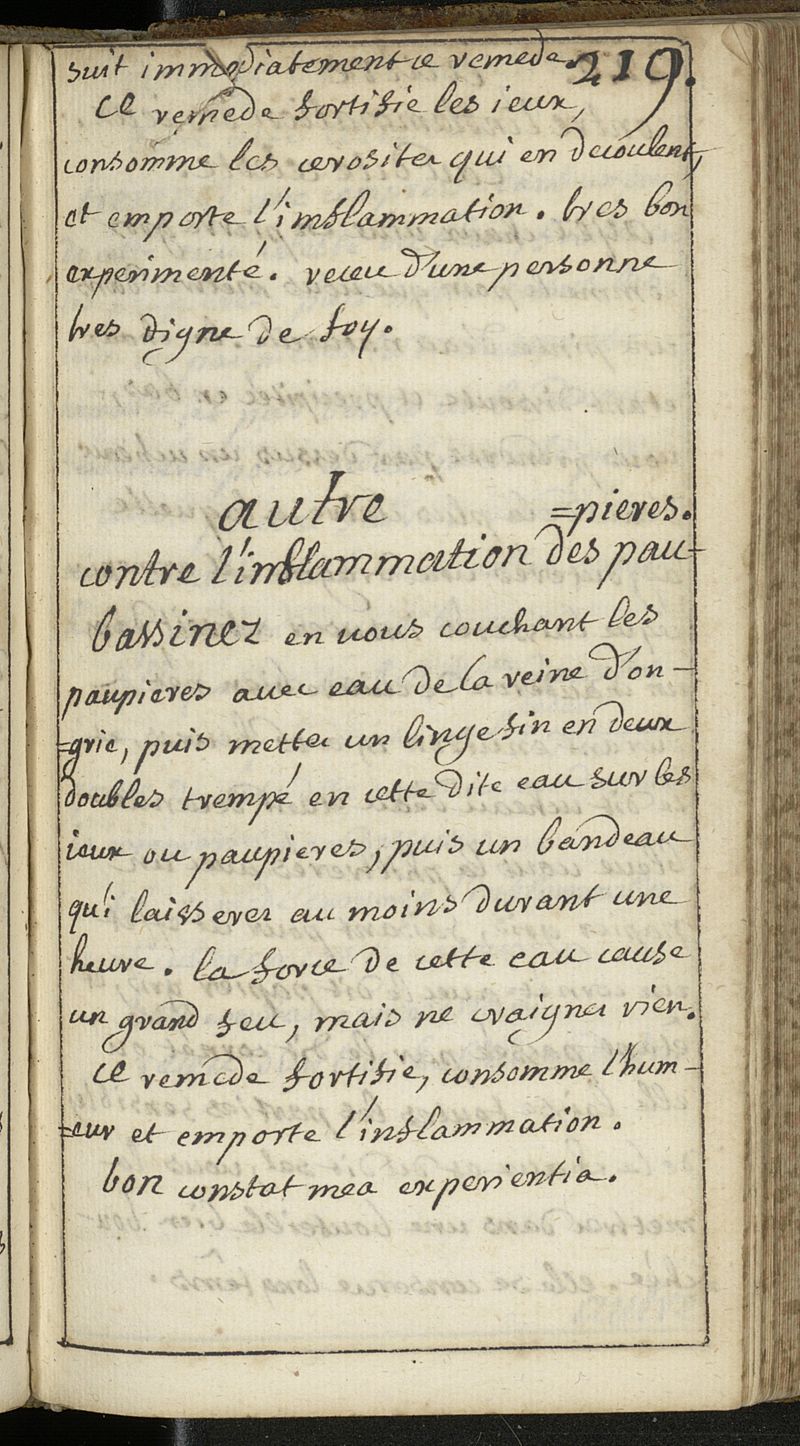 219.
suit immediatement ce remede.
Ce remede fortifie les ieux,
consomme les cerositez qui en decoulent,
et emporte l'inflammation. tres bon
experimenté. receu d'une personne
tres digne de foy.
autre
contre l'inflammation des pau-
=pieres.
bassinez en vous couchant les
paupieres avec eau de la reine d'on-
=grie, puis mettez un linge fin en deux
doubles trempé en cette dite eau sur les
ieux ou paupieres, puis un bandeau
qu'i laisserez au moins durant une
heure. la force de cette eau cause
un grand feu, mais ne craignez rien.
Ce remede fortifie, consomme l'hum-
=eur et emporte l'inflammation.
bon constat mea experientia.